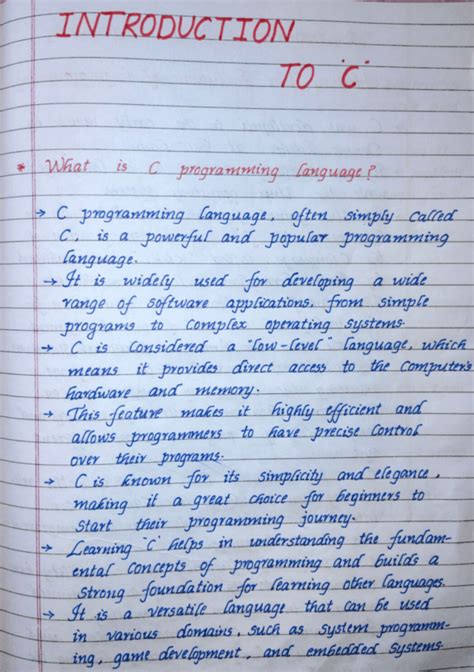 INTRODUCTION
TO "C"
* What is C programming language?
→ C programming language, often simply called
C, is a powerful and popular programming
language.
→ It is widely used for developing a wide
range of software applications, from simple
programs to complex operating systems.
→ C is considered a "low-level" language, which
means it provides direct access to the computer's
hardware and memory.
→ This feature makes it highly efficient and
allows programmers to have precise control
over their programs.
→ C is known for its simplicity and elegance,
making it a great choice for beginners to
start their programming journey.
→ Learning "C" helps in understanding the fundam-
ental concepts of programming and builds a
strong foundation for learning other languages.
→ It is a versatile language that can be used
in various domains, such as system programm-
ing, game development, and embedded systems.